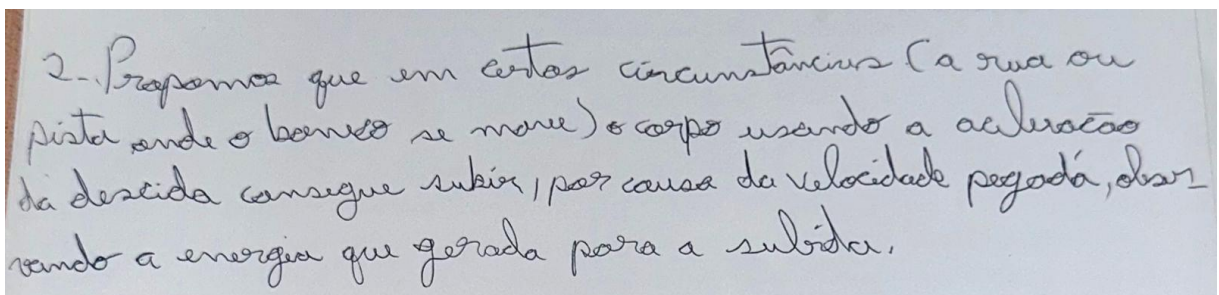 2- Propomos que em certas circunstâncias (a rua ou
pista onde o se move) o corpo usando a aceleração
da descida consegue subir, por causa da velocidade pegadá, obser
vando a energia que gerada para a subida.